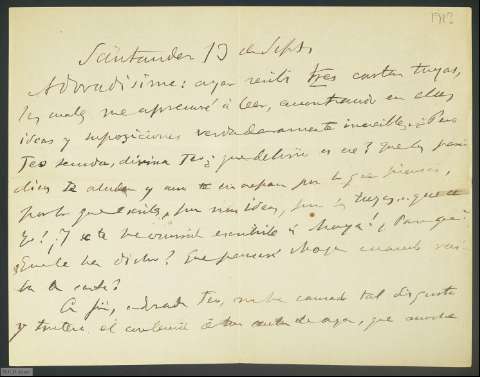 191?
Santander 13 de Septe
Adoradísima: ayer recibí tres cartas tuyas,
las cuales me apresuré á leer, encontrando en ellas
ideas y suposiciones verdaderamente increíbles. ¿Pero
Teo divina Teo, que delirio es ese? Que los
por lo que piensas,
por lo que escribes, por mis ideas, por las tuyas.. que
Yo! ¿Y se te ha ocurrido escribirle á Maya? ¿Para qué?
¿Qué le has dicho? Que pensará Maya cuando
la carta?
En fin, adorada Teo, me ha causado tal disgusto
y tristeza el contenido de tus cartas de ayer, que anoche